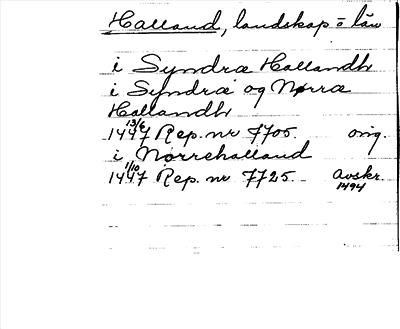 Halland, landskap o län
i Syndræ Hallandh
i Syndræ og Nørræ
Hallandh
13/6
1447 Rep. nr 7705. orig.
i Nørrehalland
1/10
1447 Rep. nr 7725. Avskr.
1494